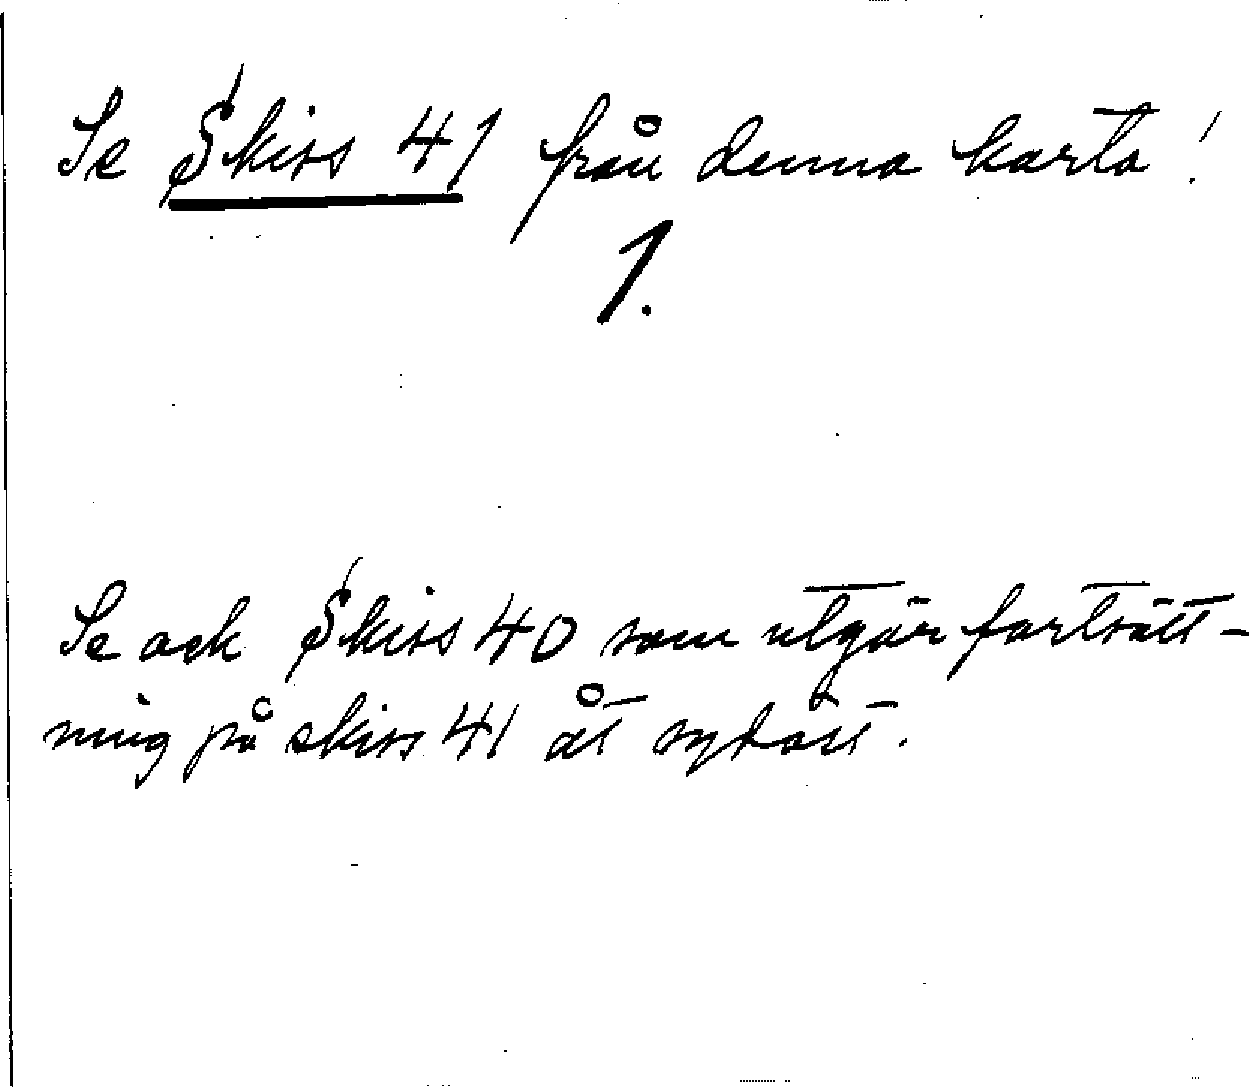 Se Skiss 41 från denna karta!
1.
Se och Skiss 40 som utgör fortsätt-
ning på skiss 41 åt sydost.